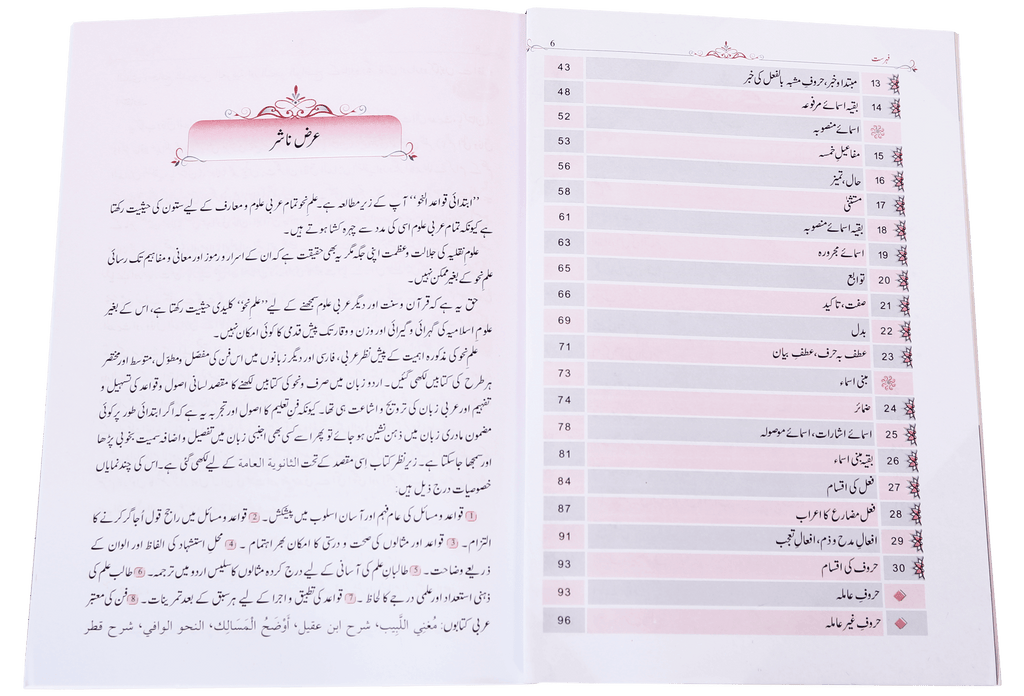 6
فہرست
13 مبتدا و خبر، حروفِ مشبہ بالفعل کی خبر 43
14 بقیہ اسمائے مرفوعہ 48
اسمائے منصوبہ 52
15 مفاعیلِ خمسہ 53
16 حال، تمیز 56
17 مستثنیٰ 58
18 بقیہ اسمائے منصوبہ 61
19 اسمائے مجرورہ 63
20 توابع 65
21 صفت، تاکید 66
22 بدل 69
23 عطف بہ حرف، عطفِ بیان 71
مبنی اسماء 73
24 ضمائر 74
25 اسمائے اشارات، اسمائے موصولہ 78
26 بقیہ مبنی اسماء 81
27 فعل کی اقسام 84
28 فعل مضارع کا اعراب 87
29 افعالِ مدح و ذم، افعالِ تعجب 91
30 حروف کی اقسام 93
حروفِ عاملہ 93
حروفِ غیر عاملہ 96
عرض ناشر
’’ابتدائی قواعد النحو‘‘ آپ کے زیر مطالعہ ہے۔ علم نحو تمام عربی علوم و معارف کے لیے ستون کی حیثیت رکھتا
ہے کیونکہ تمام عربی علوم اسی کی مدد سے چہرہ کشا ہوتے ہیں۔
علوم نقلیہ کی جلالت و عظمت اپنی جگہ مگر یہ بھی حقیقت ہے کہ ان کے اسرار و رموز اور معانی و مفاہیم تک رسائی
علم نحو کے بغیر ممکن نہیں۔
حق یہ ہے کہ قرآن و سنت اور دیگر عربی علوم سمجھنے کے لیے ’’علم نحو‘‘ کلیدی حیثیت رکھتا ہے، اس کے بغیر
علوم اسلامیہ کی گہرائی و گیرائی اور وزن و وقار تک پیش قدمی کا کوئی امکان نہیں۔
علم نحو کی مذکورہ اہمیت کے پیش نظر عربی، فارسی اور دیگر زبانوں میں اس فن کی مفصّل و مطوّل، متوسط اور مختصر
ہر طرح کی کتابیں لکھی گئیں۔ اردو زبان میں صرف و نحو کی کتابیں لکھنے کا مقصد لسانی اصول و قواعد کی تسہیل و
تفہیم اور عربی زبان کی ترویج و اشاعت ہی تھا۔ کیونکہ فن تعلیم کا اصول اور تجربہ یہ ہے کہ اگر ابتدائی طور پر کوئی
مضمون مادری زبان میں ذہن نشین ہو جائے تو پھر اسے کسی بھی اجنبی زبان میں تفصیل و اضافہ سمیت بخوبی پڑھا
اور سمجھا جاسکتا ہے۔ زیر نظر کتاب اسی مقصد کے تحت الثانوية العامة کے لیے لکھی گئی ہے۔ اس کی چند نمایاں
خصوصیات درج ذیل ہیں:
1 قواعد و مسائل کی عام فہم اور آسان اسلوب میں پیشکش۔ 2 قواعد و مسائل میں راجح قول اُجاگر کرنے کا
التزام۔ 3 قواعد اور مثالوں کی صحت و درستی کا امکان بھر اہتمام۔ 4 محل استشہاد کی الفاظ اور الوان کے
ذریعے وضاحت۔ 5 طالبانِ علم کی آسانی کے لیے درج کردہ مثالوں کا سلیس اردو میں ترجمہ۔ 6 طالب علم کی
ذہنی استعداد اور علمی درجے کا لحاظ۔ 7 قواعد کی تطبیق و اجرا کے لیے ہر سبق کے بعد تمرینات۔ 8 فن کی معتبر
عربی کتابوں: مُغنِي اللَّبِيب، شرح ابن عقيل، أَوْضَحُ الْمَسَالِك، النحو الوافي، شرح قطر